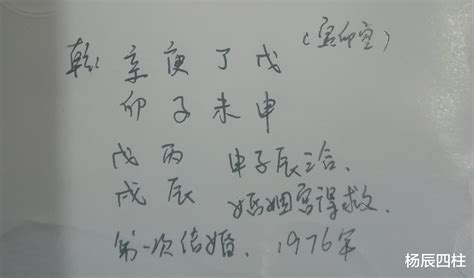 (寅卯空)
乾: 辛 庚 丁 戊
卯 子 未 申
戊 丙 申子辰三合.
戌 辰 婚姻宫得救.
第一次结婚. 1976年
杨辰四柱